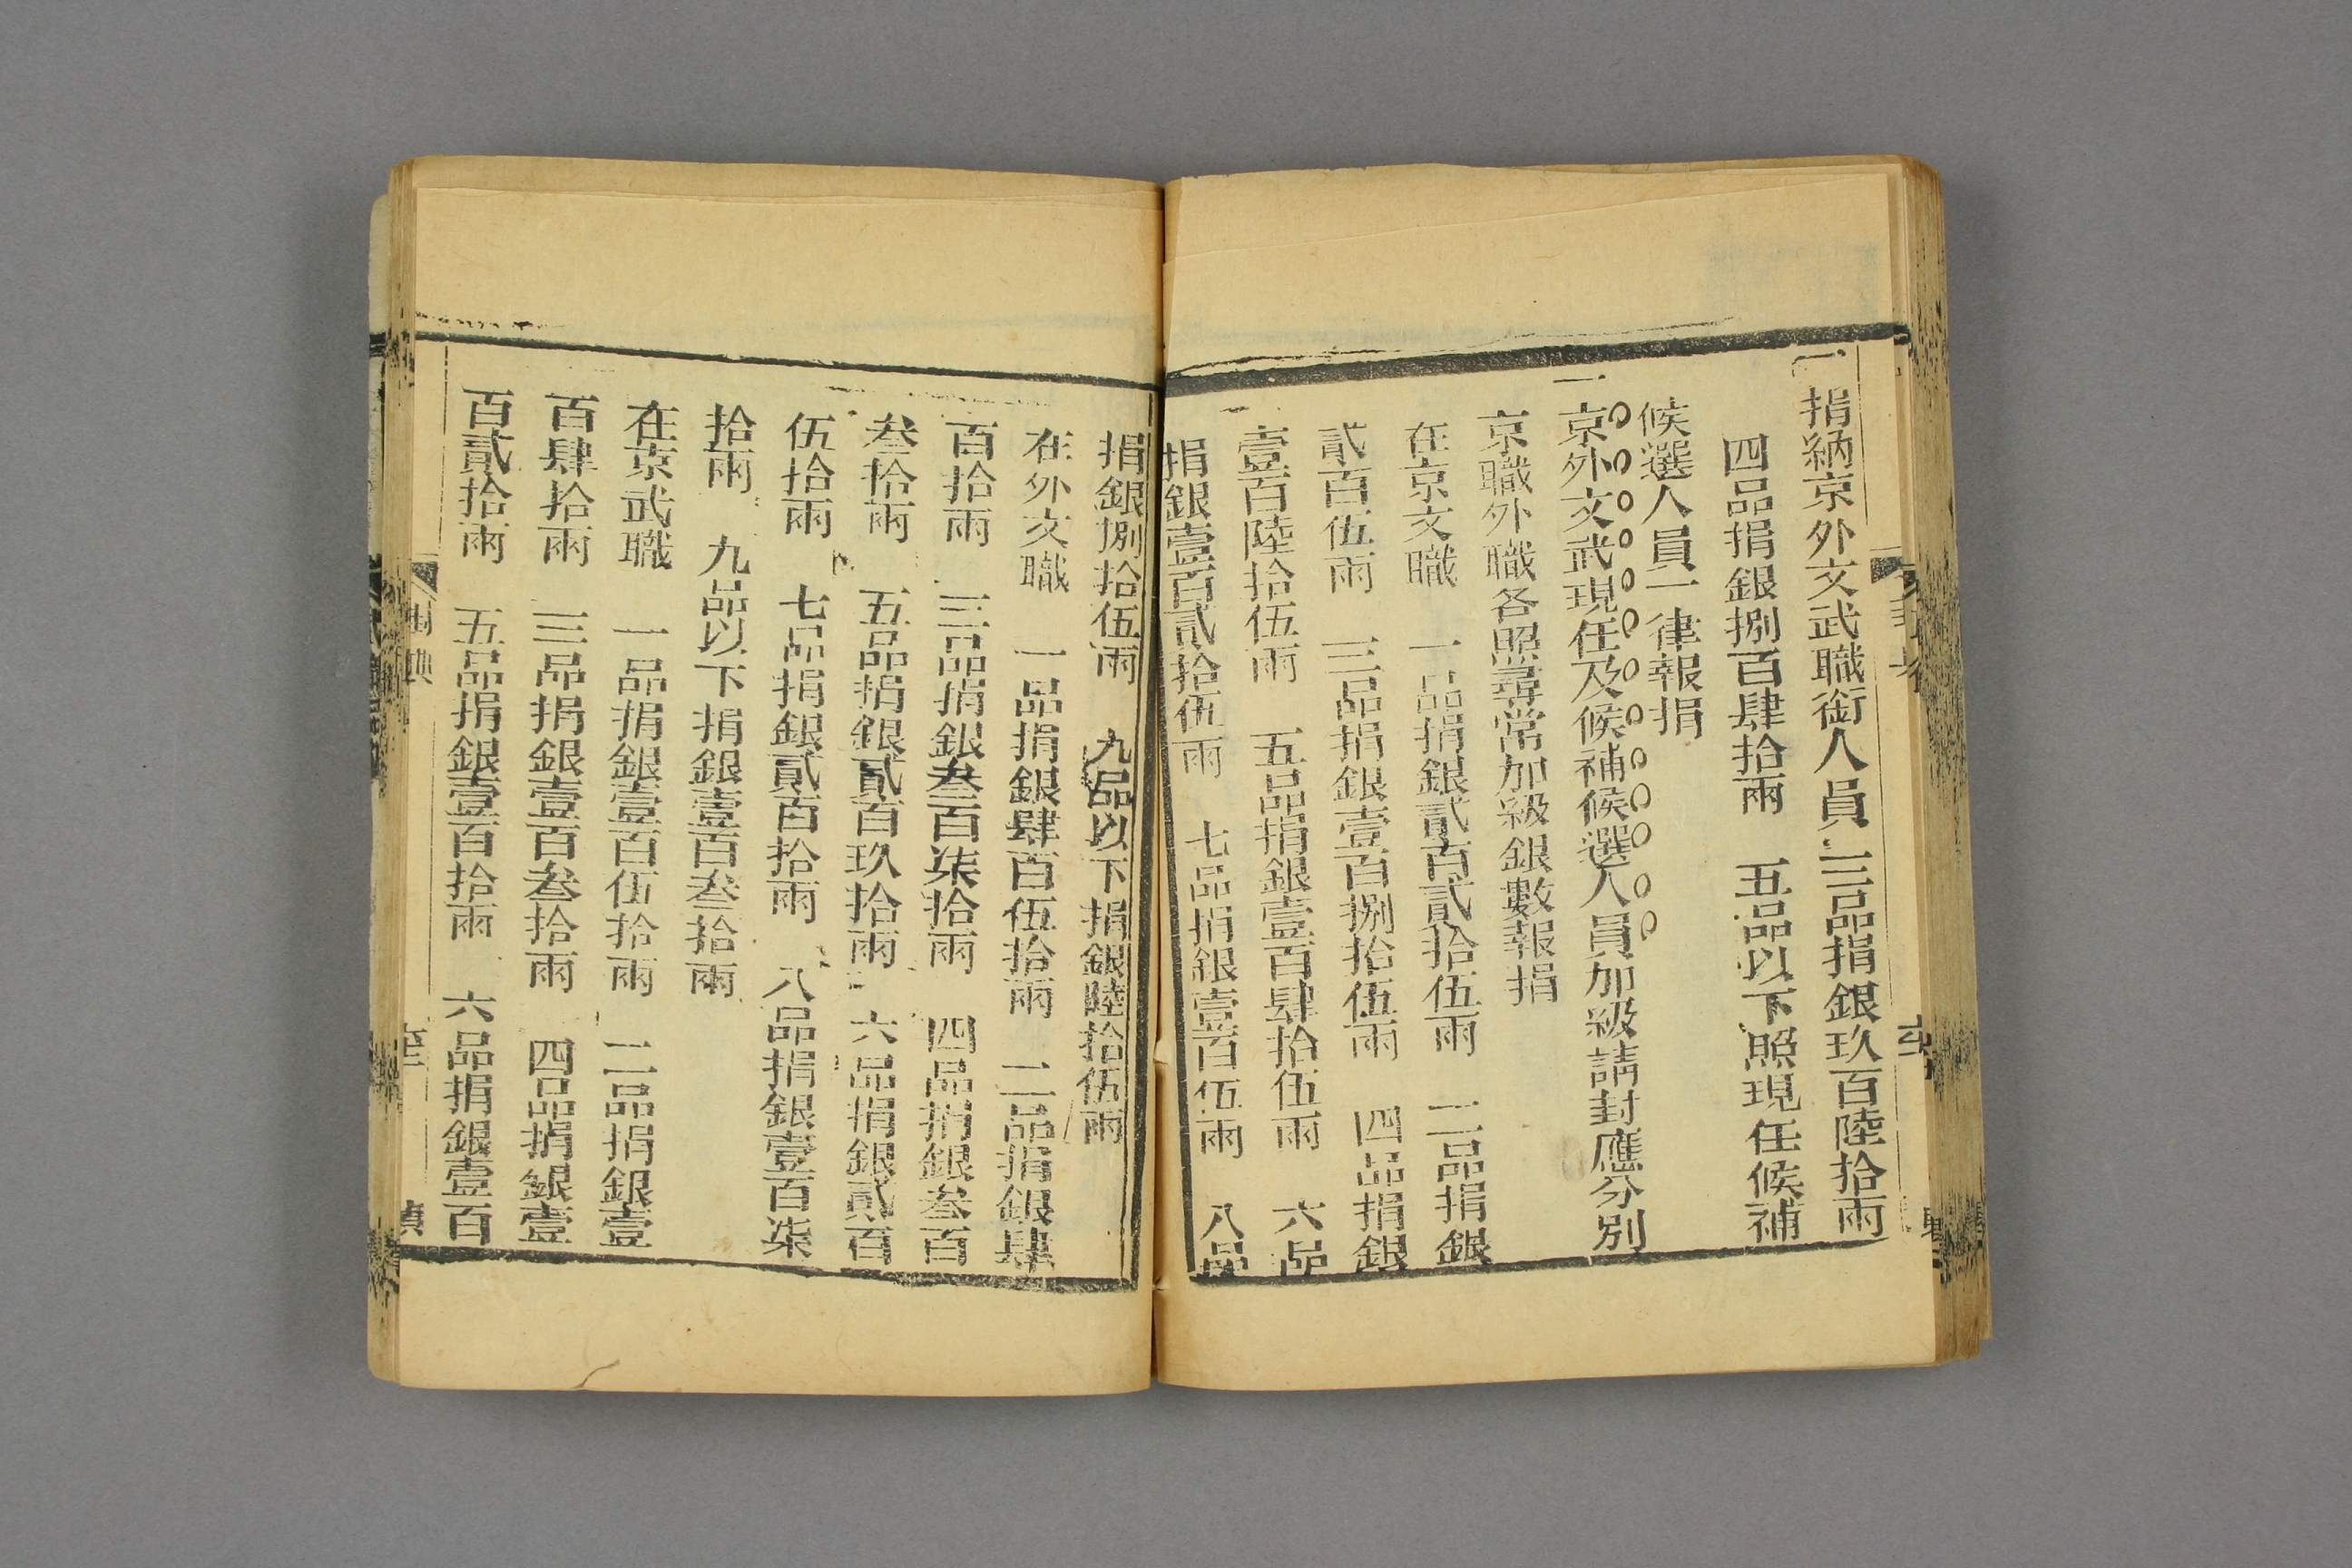 一捐納京外文武職銜人員 三品捐銀玖百陸拾兩
四品捐銀捌百肆拾兩 五品以下照現任候補
候選人員一律報捐
一京外文武現任及候補候選人員加級請封應分別
京職外職各照尋常加級銀數報捐
在京文職 一品捐銀貳百貳拾伍兩 二品捐銀
貳百伍兩 三品捐銀壹百捌拾伍兩 四品捐銀
壹百陸拾伍兩 五品捐銀壹百肆拾伍兩 六品
捐銀壹百貳拾伍兩 七品捐銀壹百伍兩 八品
捐銀捌拾伍兩 九品以下捐銀陸拾伍兩
在外文職 一品捐銀肆百伍拾兩 二品捐銀肆
百拾兩 三品捐銀叁百柒拾兩 四品捐銀叁百
叁拾兩 五品捐銀貳百玖拾兩 六品捐銀貳百
伍拾兩 七品捐銀貳百拾兩 八品捐銀壹百柒
拾兩 九品以下捐銀壹百叁拾兩
在京武職 一品捐銀壹百伍拾兩 二品捐銀壹
百肆拾兩 三品捐銀壹百叁拾兩 四品捐銀壹
百貳拾兩 五品捐銀壹百拾兩 六品捐銀壹百